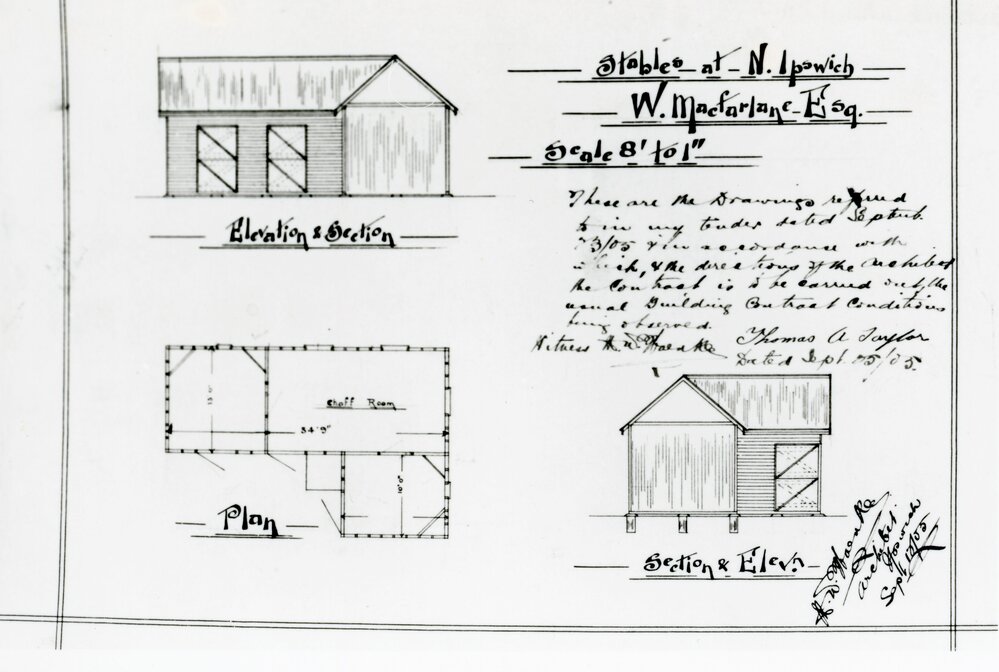 Stables at N. Ipswich
W. Macfarlane Esq.
Scale 8' to 1"
Elevation & Section
These are the Drawings referred
to in my tender dated Septemb.
/3/05 & in accordance with
which, & the directions of the Architect
the Contract is to be carried out, the
usual Building Contract Conditions
being observed.
Witness Thomas A Taylor
Dated Sept. /05.
Chaff Room
13'0"
34'9"
10'0"
Plan
Section & Elevn.
Architect
Ipswich
Sept /05